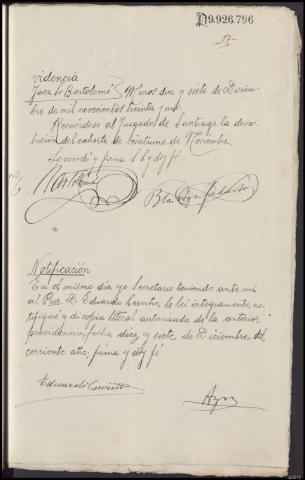 D9.926.796
videncia
Juez Sr Bartolomé } Muros diez y siete de Diciem-
bre de mil novecientos treinta y uno.
Recuérdese al Juzgado de Santiago la devo-
lucion del exhorto de veintiuno de Noviembre.
Lo acordó y firma S Sª doy fé
Bartolomé
Notificación
En el mismo dia yo Secretario teniendo ante mi
al Pror. D. Eduardo Cerviño, le lei integramente, no-
tifiqué y di copia literal autorizada de la anterior
providencia fecha diez y siete de Diciembre del
corriente año; firma y doy fé
Eduardo Cerviño